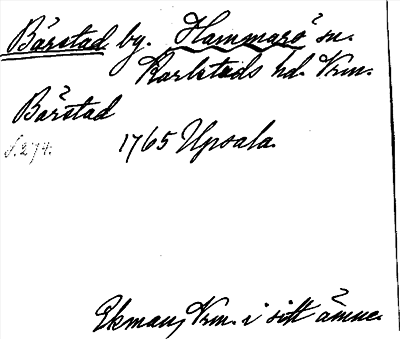 Bärstad by. Hammarö sn.
Karlstads hd. Vrm.
Bärstad
s. 274.
1765 Upsala.
Ekman, Vrm. i sitt ämne.